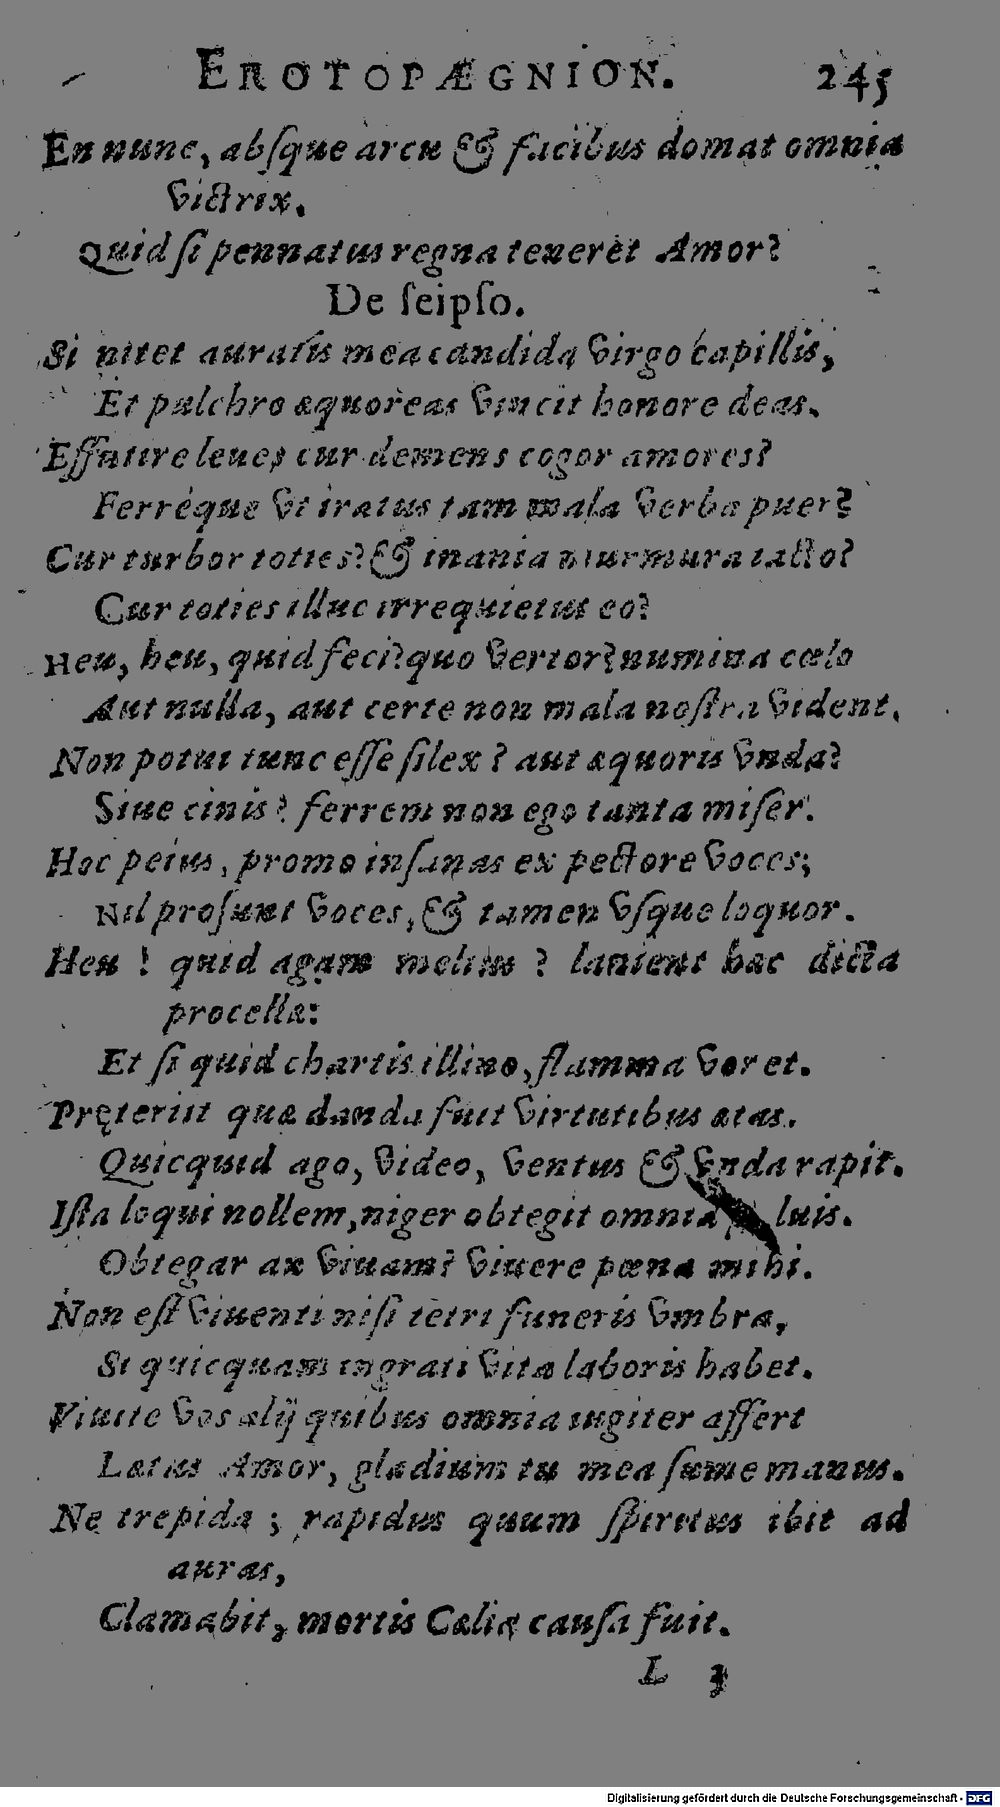 EROTOPÆGNION. 245
En nunc, absque arcu & facibus domat omnia
victrix.
Quid si pennatus regna teneret Amor?
De seipso.
Si nitet auratis mea candida virgo capillis,
Et pulchro æquoreas vincit honore deas.
Effutire leues cur demens cogor amores?
Ferréque vt iratus tam mala verba puer?
Cur turbor toties? & inania murmura iacto?
Cur toties illuc irrequietus eo?
Heu, heu, quid feci? quo vertor? numina cœlo
Aut nulla, aut certe non mala nostra vident.
Non potui tunc esse silex? aut æquoris vnda?
Siue cinis? ferrem non ego tanta miser.
Hoc peius, promo insanas ex pectore voces;
Nil prosunt voces, & tamen vsque loquor.
Heu! quid agam melius? lanient hæc dicta
procellæ:
Et si quid chartis illino, flamma voret.
Pręteriit quæ danda fuit virtutibus ætas.
Quicquid ago, video, ventus & vnda rapit.
Ista loqui nollem, niger obtegit omnia luis.
Obtegar an viuam? viuere pœna mihi.
Non est viuenti nisi tetri funeris vmbra,
Si quicquam ingrati vitæ laboris habet.
Viuite vos alij quibus omnia iugiter affert
Lætus Amor, gladium tu mea sume manus.
Ne trepida; rapidus quum spiritus ibit ad
auras,
Clamabit, mortis Cælia causa fuit.
L 3
Digitalisierung gefördert durch die Deutsche Forschungsgemeinschaft - DFG